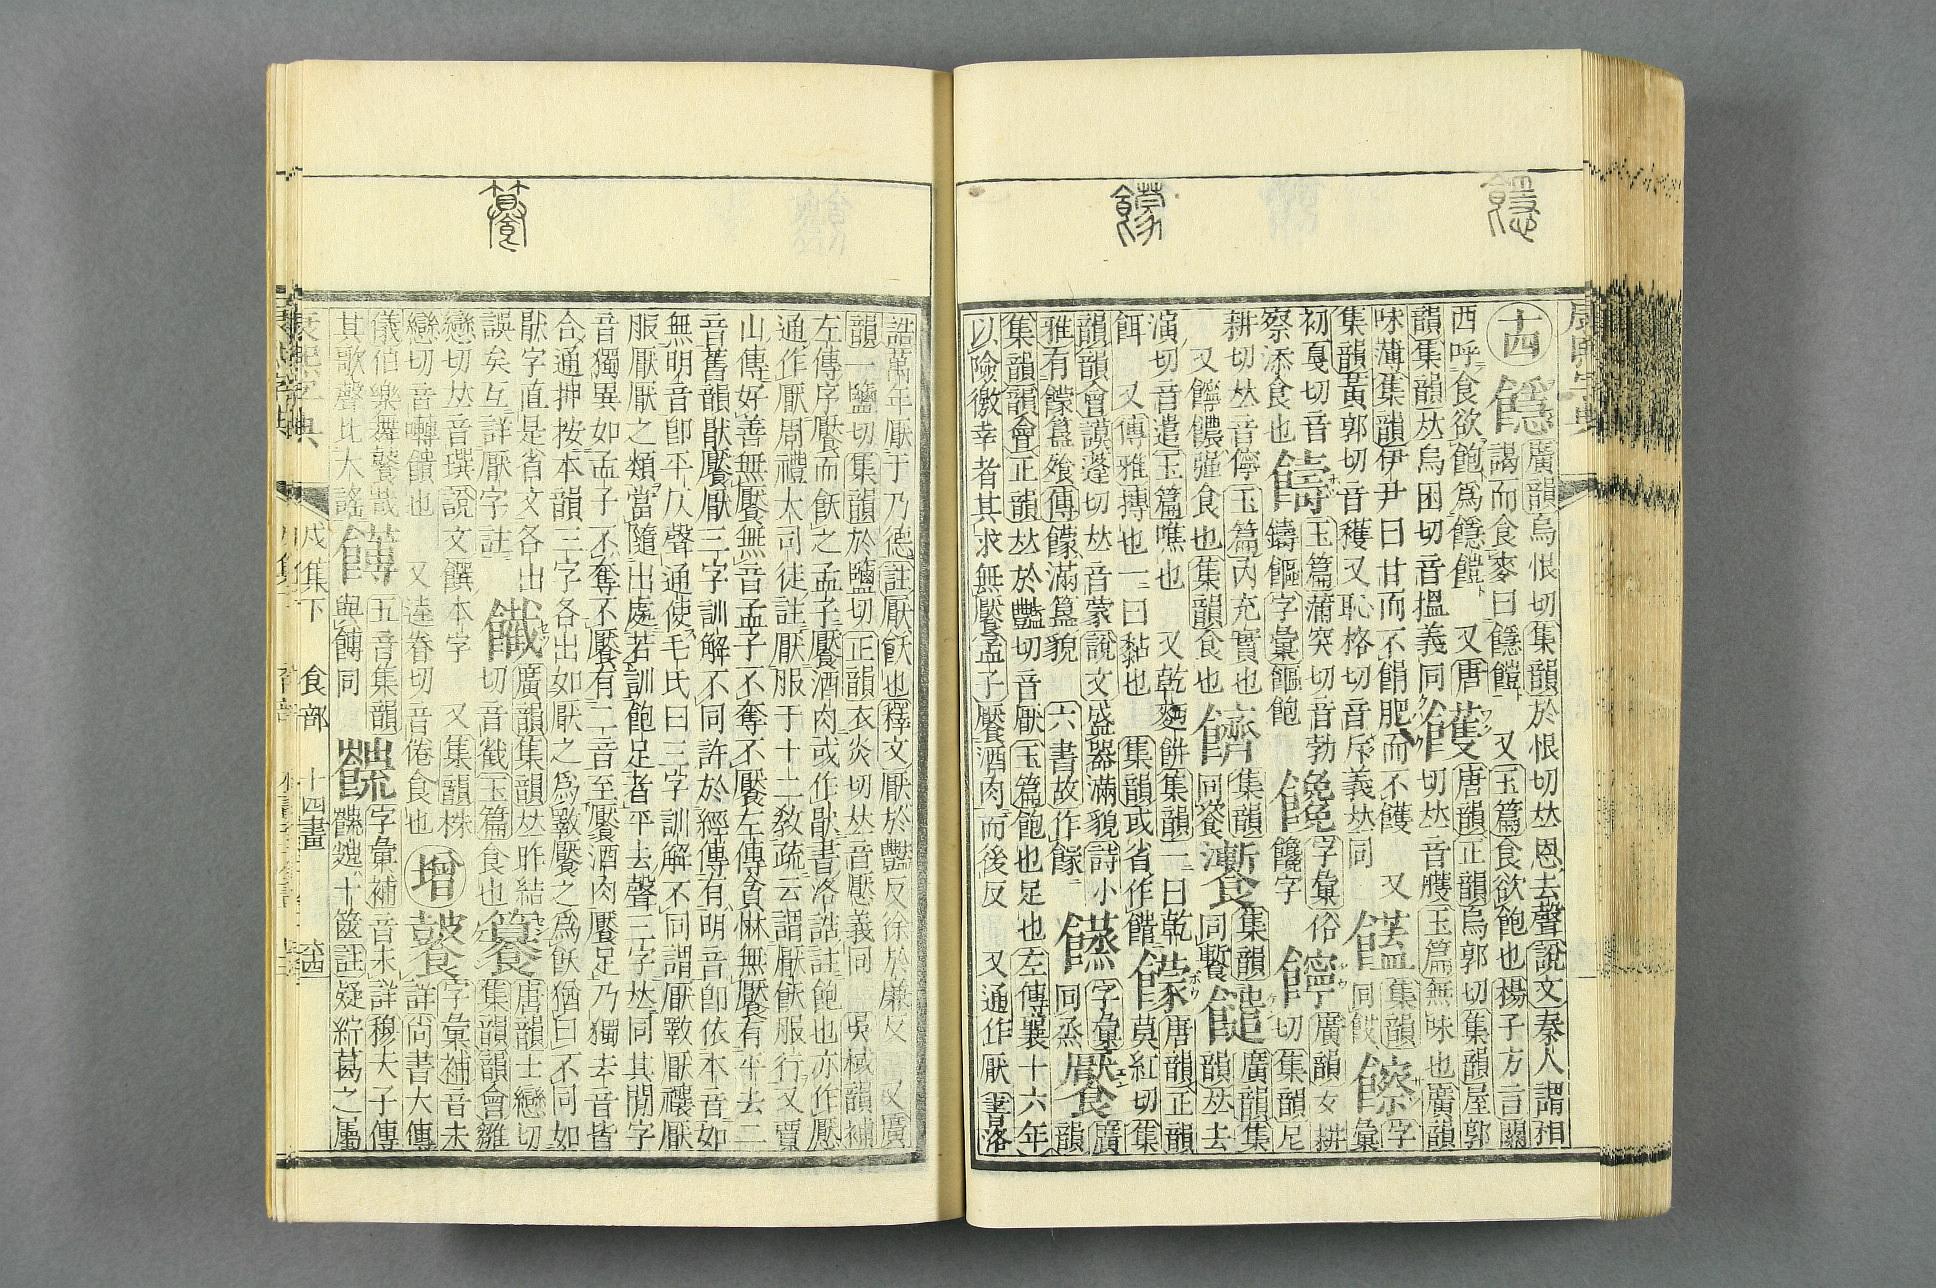 十四䭡廣韻烏恨切集韻於恨切𠀤恩去聲說文秦人謂相
謁而食麥曰䭡䭓 又玉篇食欲飽也揚子方言關
西呼食欲飽爲䭡䭓 又唐韻正韻烏郭切集韻屋郭
韻集韻𠀤烏困切音搵義同 切𠀤音臒玉篇無味也廣韻
味薄集韻伊尹曰甘而不䬼肥而不 又 集韻 字
集韻黃郭切音穫又恥格切音斥義𠀤同 同餀 彙
初戛切音 玉篇蒲突切音勃 饞字彙俗 廣韻女耕
察添食也 字彙 飽 饞字 切集韻尼
耕切𠀤音儜玉篇內充實也 集韻 集韻 廣韻集
又 強食也集韻食也 同餈 同 韻𠀤去
演切音遣玉篇噍也 又乾麪餅集韻一曰乾 唐韻正韻
餌 又博雅摶也一曰黏也 集韻或省作䭆 饛莫紅切集
韻韻會謨蓬切𠀤音蒙說文盛器滿貌詩小 字彙 廣
雅有饛簋飧傳饛滿簋貌 六書故作 同烝 饜 韻
集韻韻會正韻𠀤於豔切音厭玉篇飽也足也左傳襄十六年
以險徼幸者其求無饜孟子饜酒肉而後反 又通作厭書洛
誥萬年厭于乃德註厭飫也釋文厭於豔反徐於廉反 又廣
韻一鹽切集韻於鹽切正韻衣炎切𠀤音懕義同 吳棫韻補
左傳序饜而飫之孟子饜酒肉或作猒書洛誥註飽也亦作厭
通作厭周禮大司徒註厭服于十二敎疏云謂厭飫服行又賈
山傳好善無饜無音孟子不奪不饜左傳貪惏無饜有平去二
音舊韻猒饜厭三字訓解不同許於經傳有明音卽依本音如
無明音卽平仄聲通使毛氏曰三字訓解不同謂厭斁厭禳厭
服厭厭之類當隨出處若訓飽足者平去聲三字𠀤同其閒字
音獨異如孟子不奪不饜有二音至饜酒肉饜足乃獨去音皆
合通押按本韻三字各出如猒之爲斁饜之爲飫猶曰不同如
猒字直是省文各出 廣韻集韻𠀤昨結 唐韻士戀切
誤矣互詳厭字註 切音截玉篇食也 籑 集韻韻會雛
戀切𠀤音撰說文饌本字 又集韻株 增 字彙補音未
戀切音囀饋也 又逵眷切音倦食也 詳尚書大傳
儀伯樂舞鼚哉 五音集韻 字彙補音未詳穆天子傳
其歌聲比大謠 與餺同 十篋註疑紵葛之屬
康熙字典 戌集下 食部 十四畫